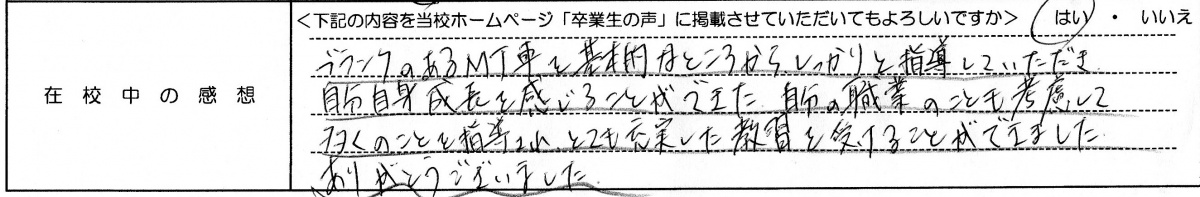 <下記の内容を当校ホームページ「卒業生の声」に掲載させていただいてもよろしいですか> はい ・ いいえ
在校中の感想
ブランクのあるMT車を基本的なところからしっかりと指導していただき
自分自身成長を感じることができた 自分の職業のことも考慮して
多くのことを指導され とても充実した教習を受けることができました
ありがとうございました